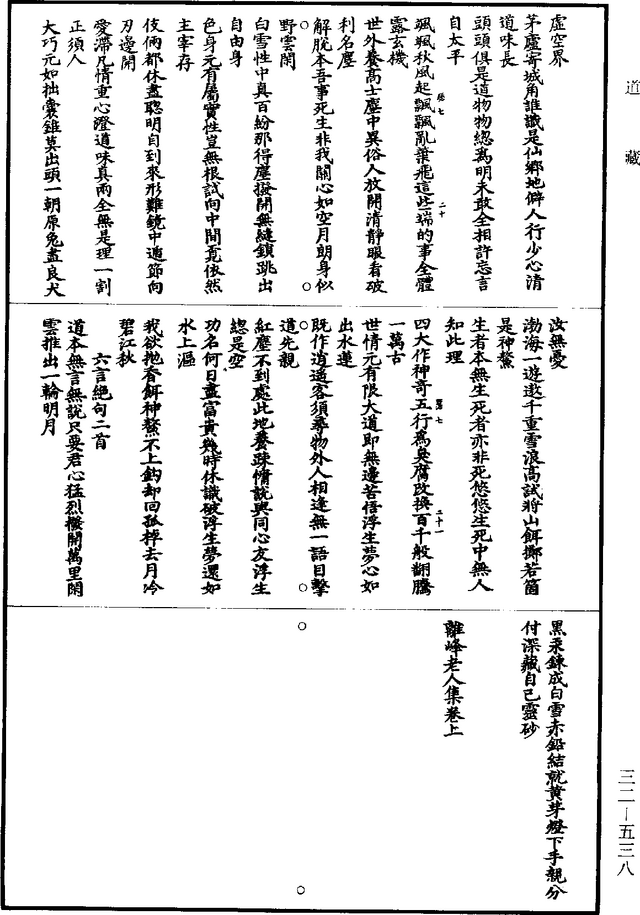 道藏
虛空界
茅廬寄城角誰識是仙鄉地僻人行少心清
道味長
頭頭俱是道物物總為明未敢全相許忘言
自太平
颯颯秋風起飄飄亂葉飛這些端的事全體
露玄機
世外養高士塵中異俗人放開清靜眼看破
利名塵
解脫本吾事死生非我關心如空月朗身似
野雲閑
白雪性中真百紛那得塵擬開無縫鎖跳出
自由身
色身元有屬實性豈無根試向中間覓依然
主宰存
伎倆都休盡聰明自到來形難鏡中遁節向
刃邊開
愛滯凡情重心澄道味真兩全無是理一割
正須人
大巧元如拙囊錐莫出頭一朝原兔盡良犬
汝無憂
渤海一遊遨千重雪浪高試將山餌擲若箇
是神鰲
生者本無生死者亦非死悠悠生死中無人
知此理
四大作神奇五行為臭腐改換百千般翻騰
一萬古
世情元有限大道即無邊苦悟浮生夢心如
出水蓮
既作逍遥客須尋物外人相逢無一語目擊
道先親
紅塵不到處此地養疎慵說與同心友浮生
總是空
功名何日盡富貴幾時休識破浮生夢還如
水上漚
我欲抛香餌神鰲不上鈎却回孤棹去月冷
碧江秋
六言絕句二首
道本無言無說只要君心猛烈撥開萬里閑
雲推出一輪明月
黑汞鍊成白雪赤鉛結就黃芽燈下手親分
付深藏自己靈砂
離峰老人集卷上
三二—五三八